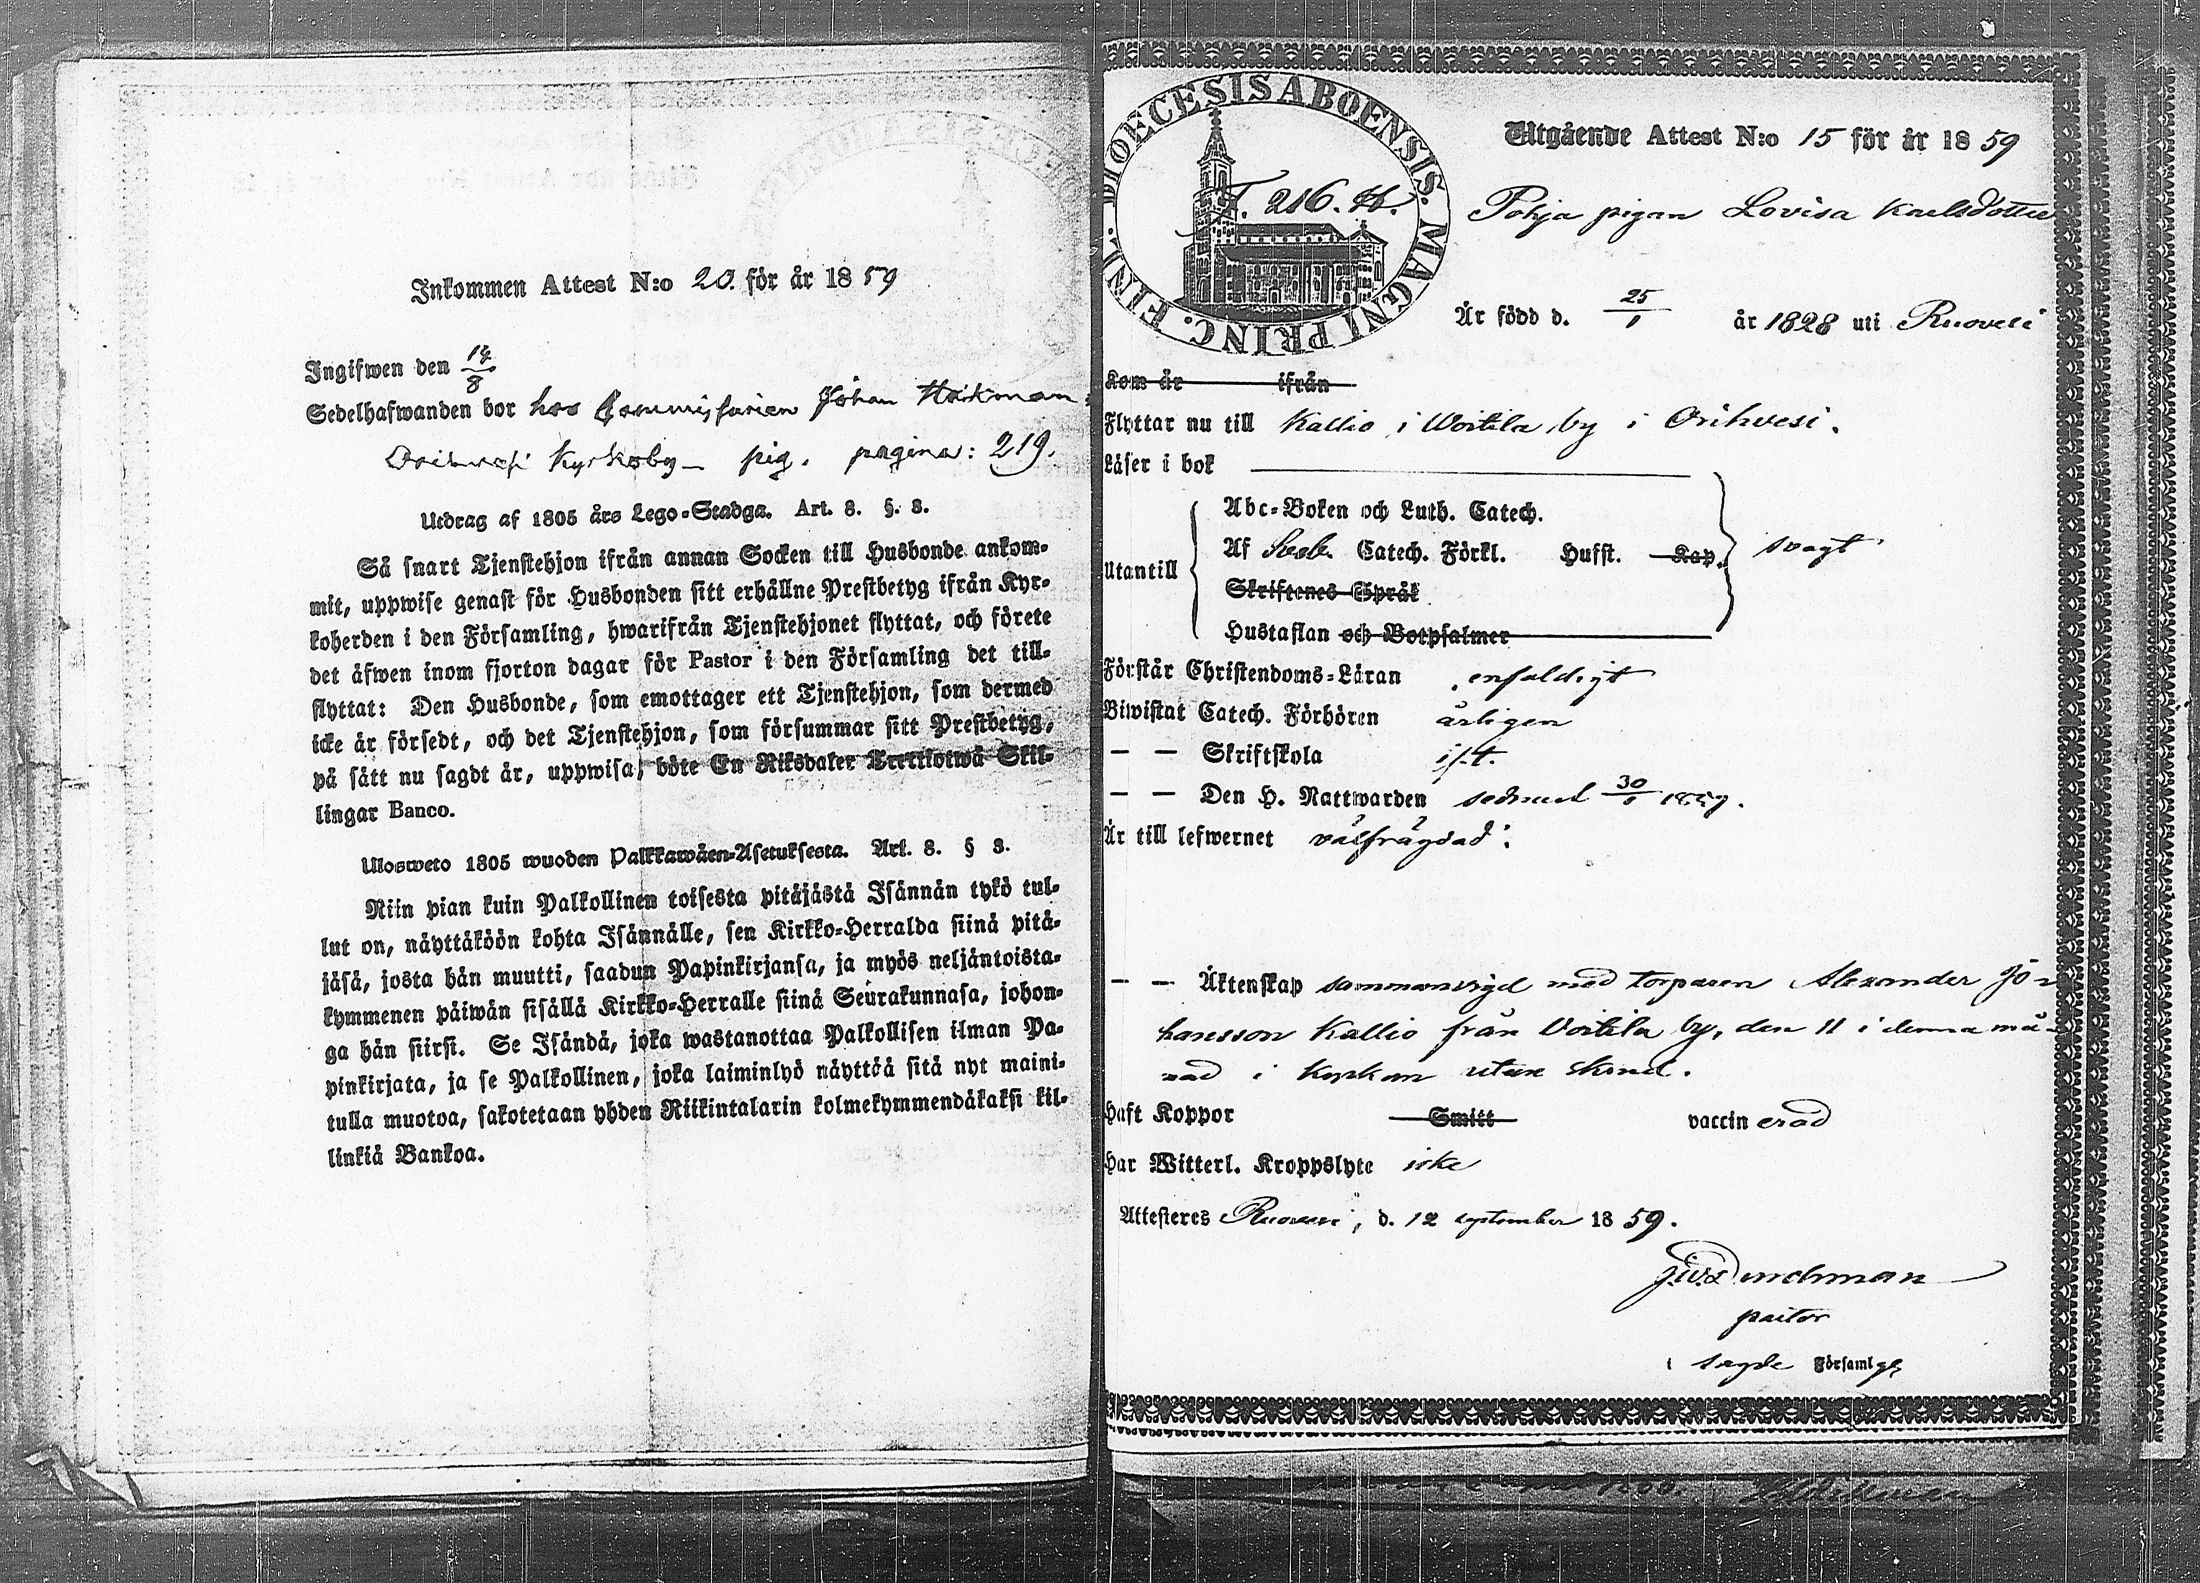 Inkommen Attest N:o 20. för år 1859
Ingifwen den 14/8
Sedelhafwanden bor hos Commissarien Johan Heikman
Orihvesi Kyrkoby pig. pagina: 219.
Utdrag af 1805 års Lego-Stadga. Art. 8. §. 3.
Så snart Tjenstehjon ifrån annan Socken till Husbonde ankom-
mit, uppwise genast för Husbonden sitt erhållne Prestbetyg ifrån Kyr-
koherden i den Församling, hwarifrån Tjenstehjonet flyttat, och förete
det äfwen inom fjorton dagar för Pastor i den Församling det till-
flyttat: Den Husbonde, som emottager ett Tjenstehjon, som dermed
icke är försedt, och det Tjenstehjon, som försummar sitt Prestbetyg,
på sätt nu sagdt är, uppwisa, böte En Riksdaler Trettiotwå Skil-
lingar Banco.
Ulosweto 1805 wuoden Palkkawäen-Asetuksesta. Art. 8. § 3.
Niin pian kuin Palkollinen toisesta pitäjästä Isännän tykö tul-
lut on, näyttäköön kohta Isännälle, sen Kirkko-Herralda siinä pitä-
jäsä, josta hän muutti, saadun Papinkirjansa, ja myös neljäntoista-
kymmenen päiwän sisällä Kirkko-Herralle siinä Seurakunnasa, johon-
ga hän siirsi. Se Isändä, joka wastanottaa Palkollisen ilman Pa-
pinkirjata, ja se Palkollinen, joka laiminlyö näyttöä sitä nyt maini-
tulla muotoa, sakotetaan yhden Riikintalarin kolmekymmendäkaksi kil-
linkiä Bankoa.
DIOECESIS ABOENSIS. MAGNI PRINC. FINL.
F. 216. H.
Utgående Attest N:o 15 för år 1859
Pohja pigan Lovisa Karlsdotter
Är född d. 25/1 år 1828 uti Ruovesi
Kom år ifrån
Flyttar nu till Kallio i Woitila by i Orihvesi.
Läser i bok
Utantill
Abc-Boken och Luth. Catech.
Af Sveb. Catech. Förkl. Husst. Kap.
svagt
Skriftenes Språk
Hustaflan och Botpsalmer
Förstår Christendoms-Läran enfaldigt
Biwistat Catech. Förhören årligen
— — Skriftskola
— — Den H. Nattwarden sednast 30/1 1859.
Är till lefwernet välfrägdad.
— — Äktenskap sammanvigd med torparen Alexander Jo-
hansson Kallio från Voitila by, den 11 i denna må-
nad i kyrkan utan skoud.
Haft Koppor Smitt vaccinerad
Har Witterl. Kroppslyte icke
Attesteras Ruovesi, d. 12 september 1859.
pastor
i sagde Församlg.